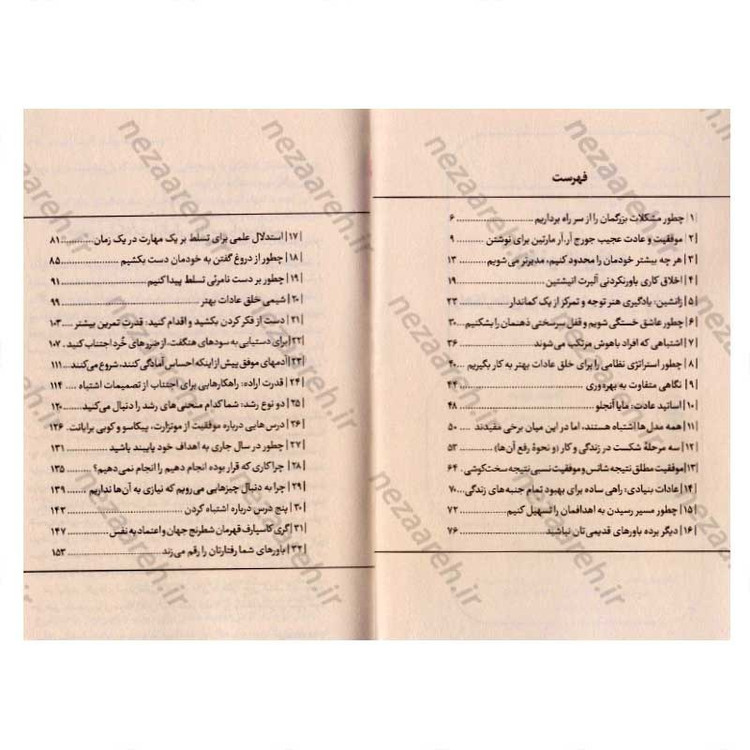 فهرست
۱| چطور مشکلات بزرگمان را از سر راه برداریم ........ ۶
۲| موفقیت و عادت عجیب جورج آر.آر مارتین برای نوشتن ........ ۹
۳| هر چه بیشتر خودمان را محدود کنیم، مدبرتر می شویم ........ ۱۳
۴| اخلاق کاری باورنکردنی آلبرت انیشتین ........ ۱۹
۵| زانشین: یادگیری هنر توجه و تمرکز از یک کماندار ........ ۲۳
۶| چطور عاشق خستگی شویم و قفل سرسختی ذهنمان را بشکنیم ... ۳۰
۷| اشتباهی که افراد باهوش مرتکب می شوند ........ ۳۶
۸| چطور استراتژی نظامی را برای خلق عادات بهتر به کار بگیریم ... ۴۰
۹| نگاهی متفاوت به بهره وری ........ ۴۴
۱۰| اساتید عادت: مایا آنجلو ........ ۴۸
۱۱| همه مدل ها اشتباه هستند، اما در این میان برخی مفیدند ... ۵۰
۱۲| سه مرحلهٔ شکست در زندگی و کار (و نحوهٔ رفع آن ها) ........ ۵۳
۱۳| موفقیت مطلق نتیجه شانس و موفقیت نسبی نتیجه سخت کوشی . ۶۴
۱۴| عادات بنیادی: راهی ساده برای بهبود تمام جنبه های زندگی .... ۷۰
۱۵| چطور مسیر رسیدن به اهدافمان را تسهیل کنیم ........ ۷۲
۱۶| دیگر برده باورهای قدیمی تان نباشید ........ ۷۶
۱۷| استدلال علمی برای تسلط بر یک مهارت در یک زمان ........ ۸۱
۱۸| چطور از دروغ گفتن به خودمان دست بکشیم ........ ۸۵
۱۹| چطور بر دست نامرئی تسلط پیدا کنیم ........ ۹۱
۲۰| شیمی خلق عادات بهتر ........ ۹۹
۲۱| دست از فکر کردن بکشید و اقدام کنید: قدرت تمرین بیشتر .... ۱۰۳
۲۲| برای دستیابی به سودهای هنگفت، از ضررهای خُرد اجتناب کنید. ۱۰۷
۲۳| آدمهای موفق پیش از اینکه احساس آمادگی کنند، شروع می کنند .... ۱۱۱
۲۴| قدرت اراده: راهکارهایی برای اجتناب از تصمیمات اشتباه .... ۱۱۴
۲۵| دو نوع رشد: شما کدام منحنی های رشد را دنبال می کنید ........ ۱۲۰
۲۶| درس هایی درباره موفقیت از موتزارت، پیکاسو و کوبی برایانت. ۱۲۶
۲۷| چطور در سال جاری به اهداف خود پایبند باشید ........ ۱۳۱
۲۸| چرا کاری که قرار بوده انجام دهیم را انجام نمی دهیم؟ ........ ۱۳۵
۲۹| چرا به دنبال چیزهایی می رویم که نیازی به آن ها نداریم ........ ۱۳۹
۳۰| پنج درس درباره اشتباه کردن ........ ۱۴۳
۳۱| گری کاسپارف قهرمان شطرنج جهان و اعتماد به نفس ........ ۱۴۷
۳۲| باورهای شما رفتارتان را رقم می زند ........ ۱۵۳
nezaareh.ir